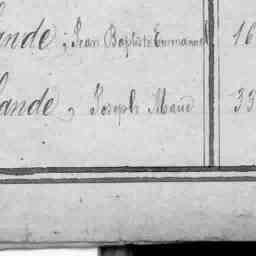 ande, Jean Baptiste Emmanuel 16
Lande, Joseph Maud 33